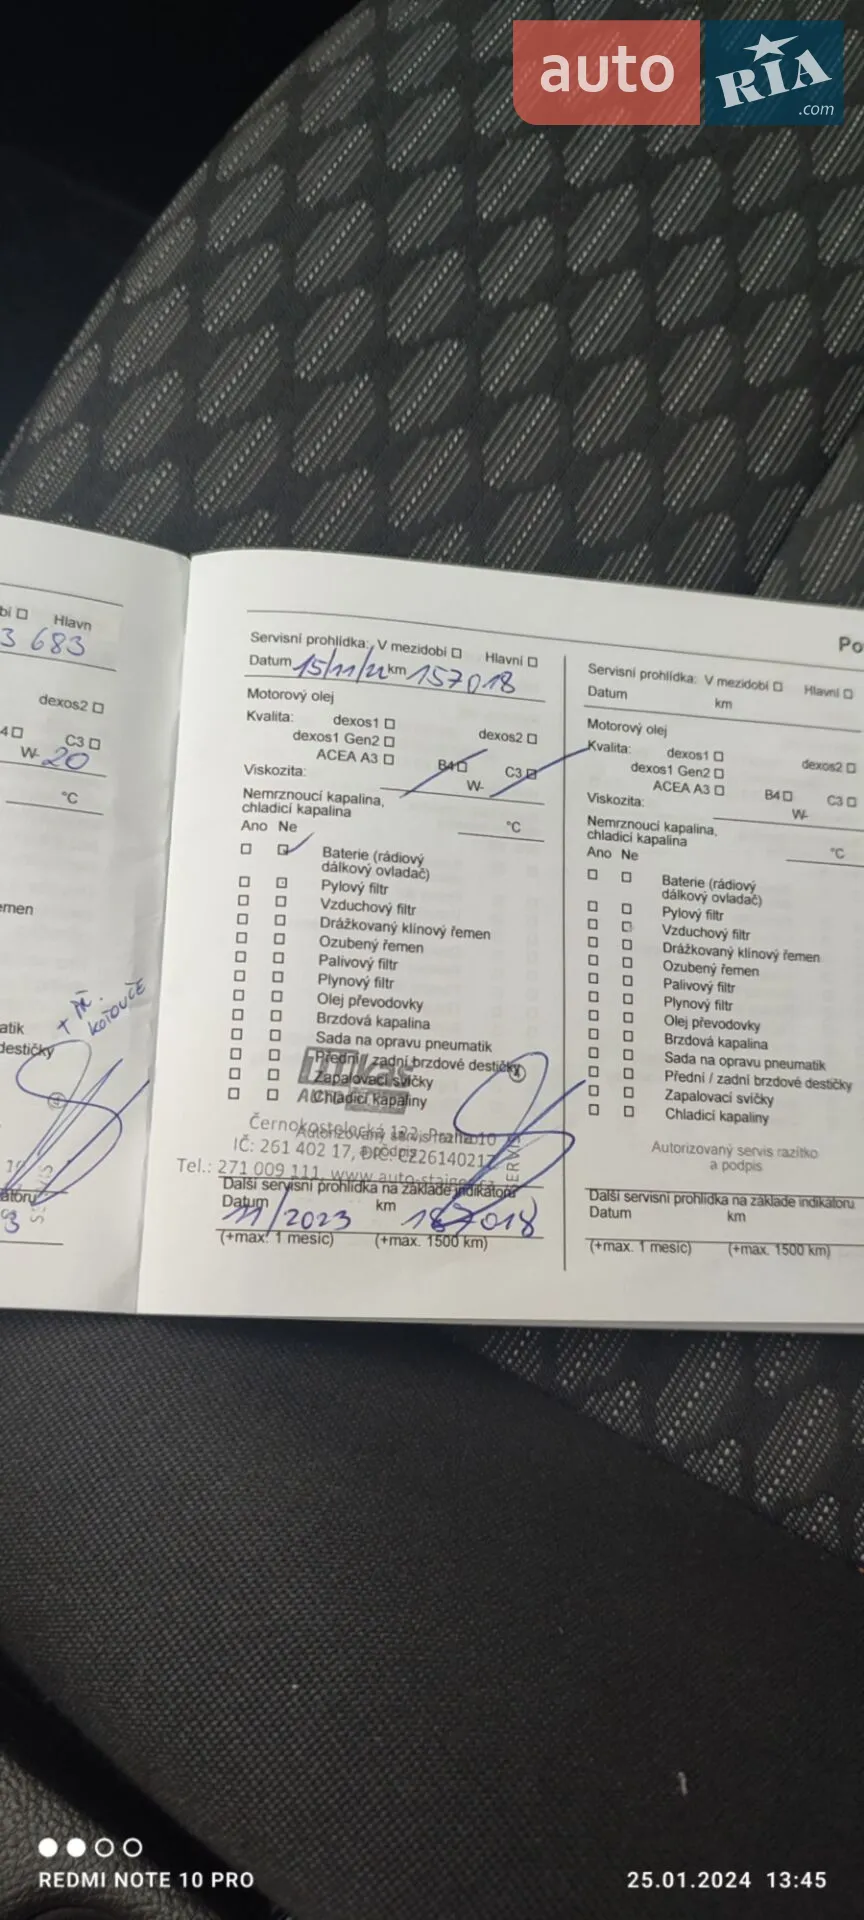 auto RIA.com
bí Hlavn
3 683
dexos2
4 C3
W- 20
°C
emen
+ PŘ. KOTOUČE
atik
destičky
Servisní prohlídka: V mezidobí Hlavní
Datum 15/11/22 km 157018
Motorový olej
Kvalita: dexos1 dexos2
dexos1 Gen2
ACEA A3 B4 C3
Viskozita: W-
Nemrznoucí kapalina,
chladicí kapalina °C
Ano Ne
Baterie (rádiový
dálkový ovladač)
Pylový filtr
Vzduchový filtr
Drážkovaný klínový řemen
Ozubený řemen
Palivový filtr
Plynový filtr
Olej převodovky
Brzdová kapalina
Sada na opravu pneumatik
Přední / zadní brzdové destičky
Zapalovací svíčky
Chladicí kapaliny
Černokostelecká 122, Praha 10
Autorizovaný servis razítko
a podpis
IČ: 261 402 17, DIČ: CZ26140217
Tel.: 271 009 111, www.auto-staiger.cz
SERVIS
Další servisní prohlídka na základe indikátoru
Datum 11/2023 km 187018
(+max. 1 mesíc) (+max. 1500 km)
Po
Servisní prohlídka: V mezidobí Hlavní
Datum km
Motorový olej
Kvalita: dexos1 dexos2
dexos1 Gen2
ACEA A3 B4 C3
Viskozita: W-
Nemrznoucí kapalina,
chladicí kapalina °C
Ano Ne
Baterie (rádiový
dálkový ovladač)
Pylový filtr
Vzduchový filtr
Drážkovaný klínový řemen
Ozubený řemen
Palivový filtr
Plynový filtr
Olej převodovky
Brzdová kapalina
Sada na opravu pneumatik
Přední / zadní brzdové destičky
Zapalovací svíčky
Chladicí kapaliny
Autorizovaný servis razítko
a podpis
Další servisní prohlídka na základe indikátoru
Datum km
(+max. 1 mesíc) (+max. 1500 km)
REDMI NOTE 10 PRO
25.01.2024 13:45